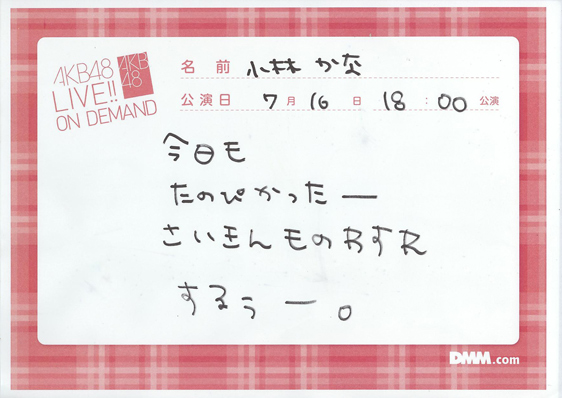 AKB48
LIVE!!
ON DEMAND
AKB
48
名前 小林 かな
公演日 7月 16日 18:00公演
今日も
たのぴかったー
さいきんものわすれ
するぅー。
DMM.com